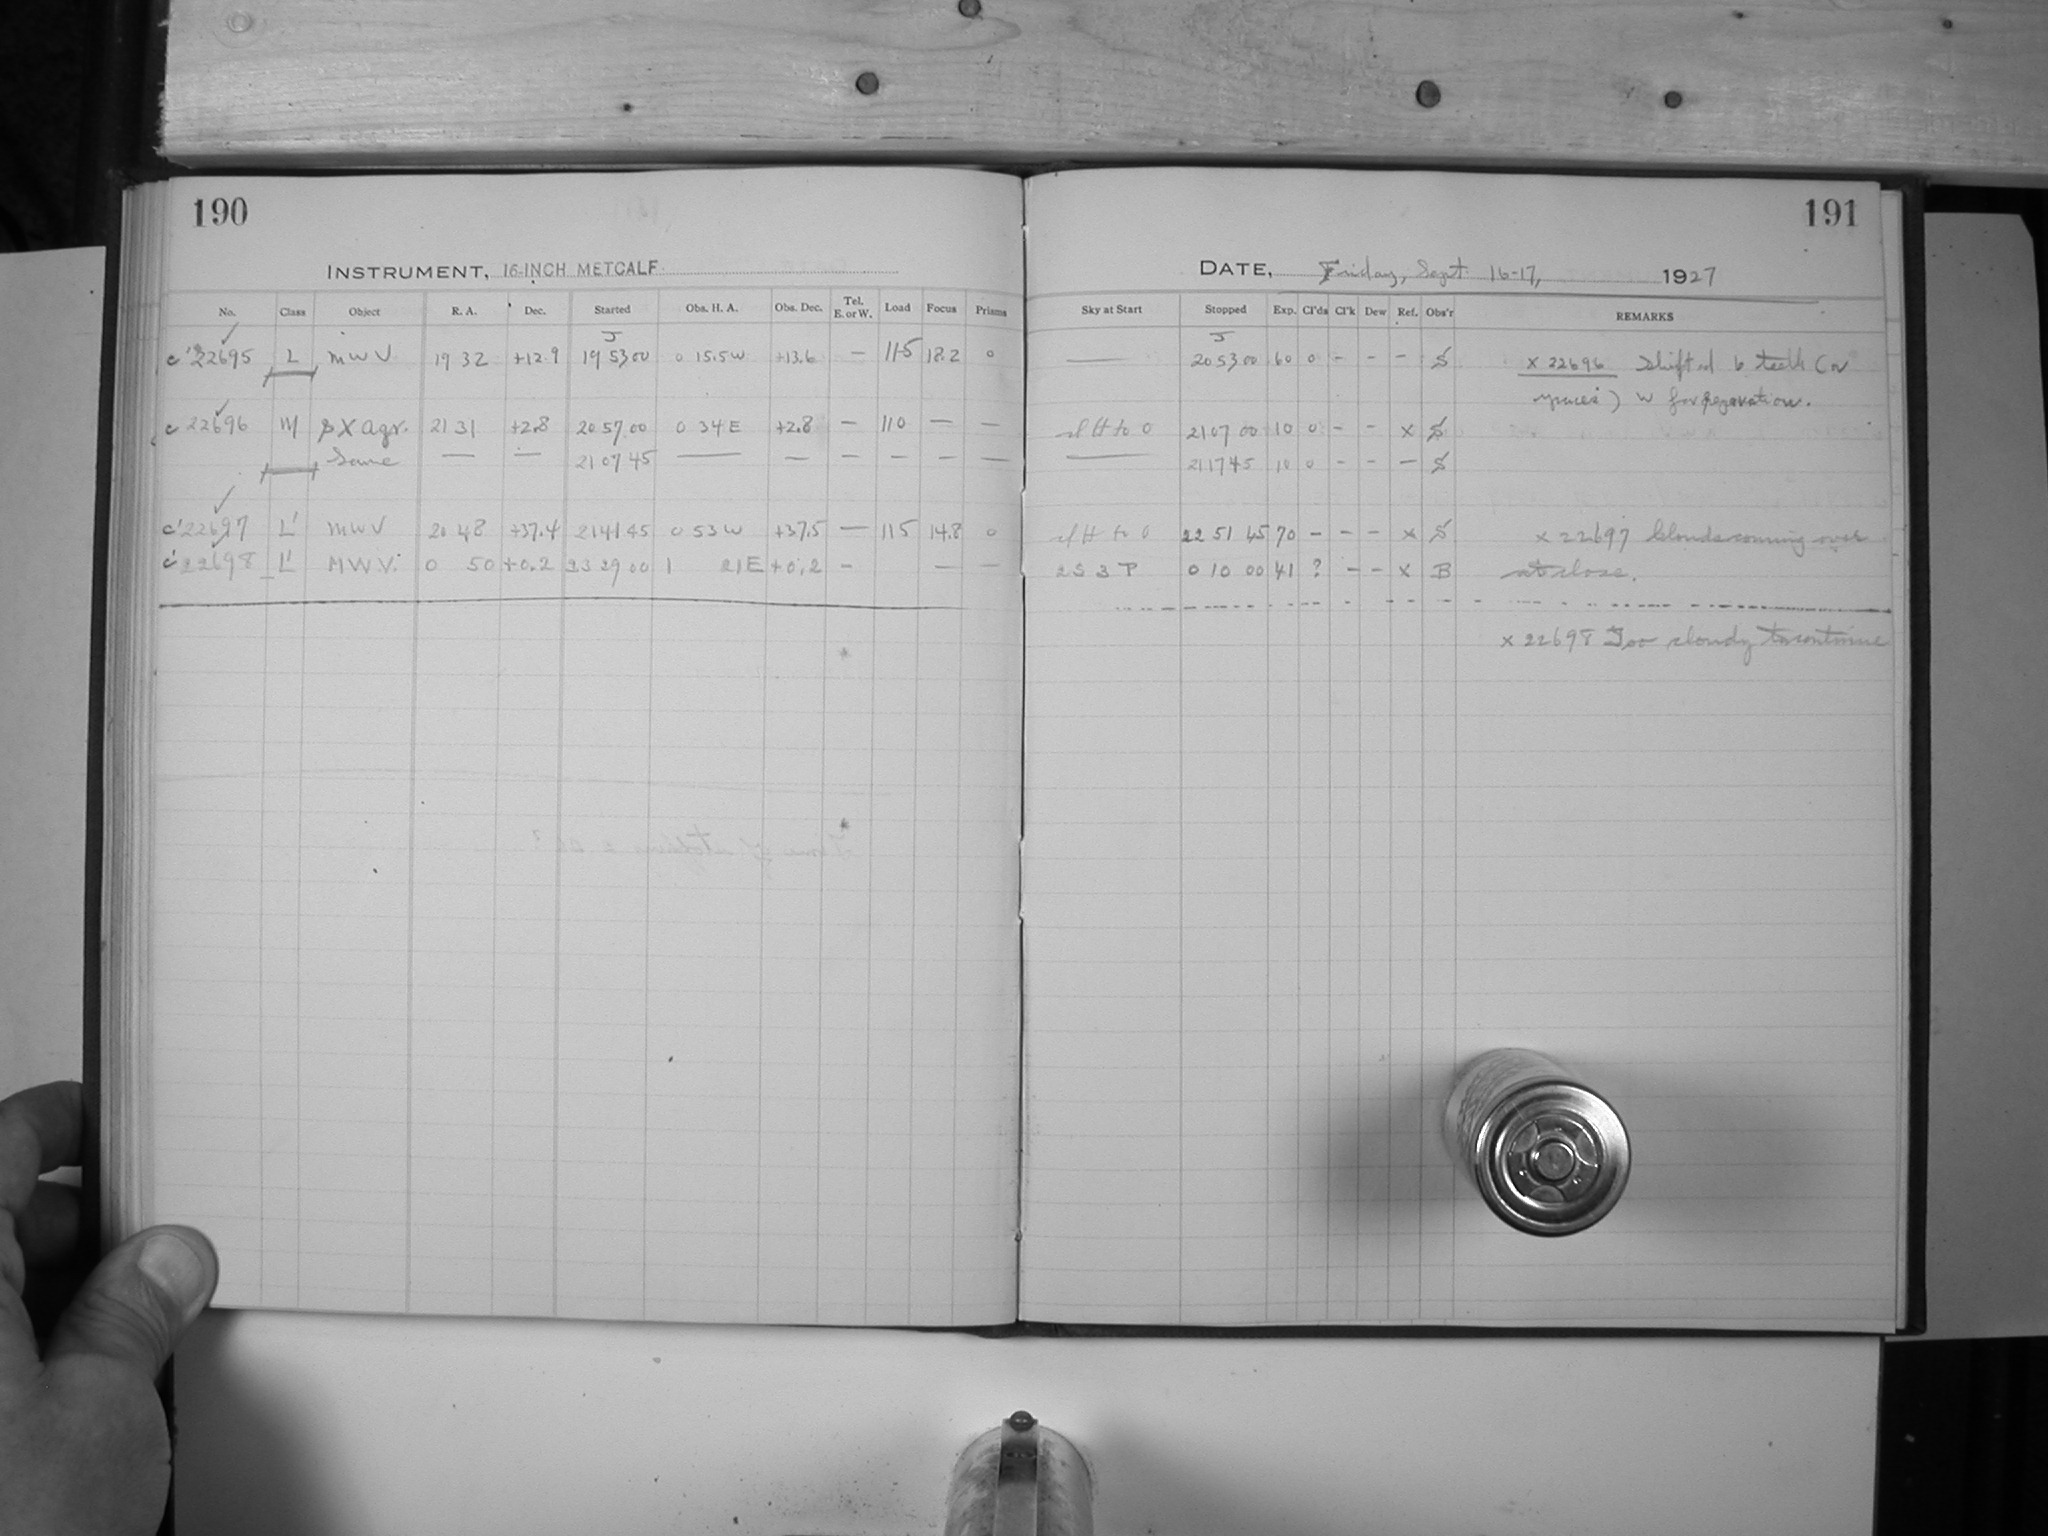 190
191
INSTRUMENT, 16-INCH METCALF
DATE, Friday, Sept. 16-17, 1927
No. Class Object R. A. Dec. Started Obs. H. A. Obs. Dec. Tel. E. or W. Load Focus Prisms Sky at Start Stopped Exp. Cl'ds Cl'k Dew Ref. Obs'r REMARKS
J J
c' 22695 L MWV 19 32 +12.9 19 53 00 0 15.5 W +13.6 — 115 18.2 0 — 20 53 00 60 0 - - - S x 22696 Shifted 6 teeth (or
spaces) W for separation.
c 22696 M X Aqr. 21 31 +2.8 20 57 00 0 34 E +2.8 — 110 — — H to 0 21 07 00 10 0 - - x S
Same — — 21 07 45 — — — — — — — 21 17 45 10 0 - - - S
c' 22697 L' MWV 20 48 +37.4 21 41 45 0 53 W +37.5 — 115 14.8 0 H to 0 22 51 45 70 - - - x S x 22697 Clouds coming over
c' 22698 L' MWV. 0 50 +0.2 23 29 00 1 21 E +0.2 - — — 2 S 3 P 0 10 00 41 ? - - x B at close.
x 22698 Too cloudy to continue